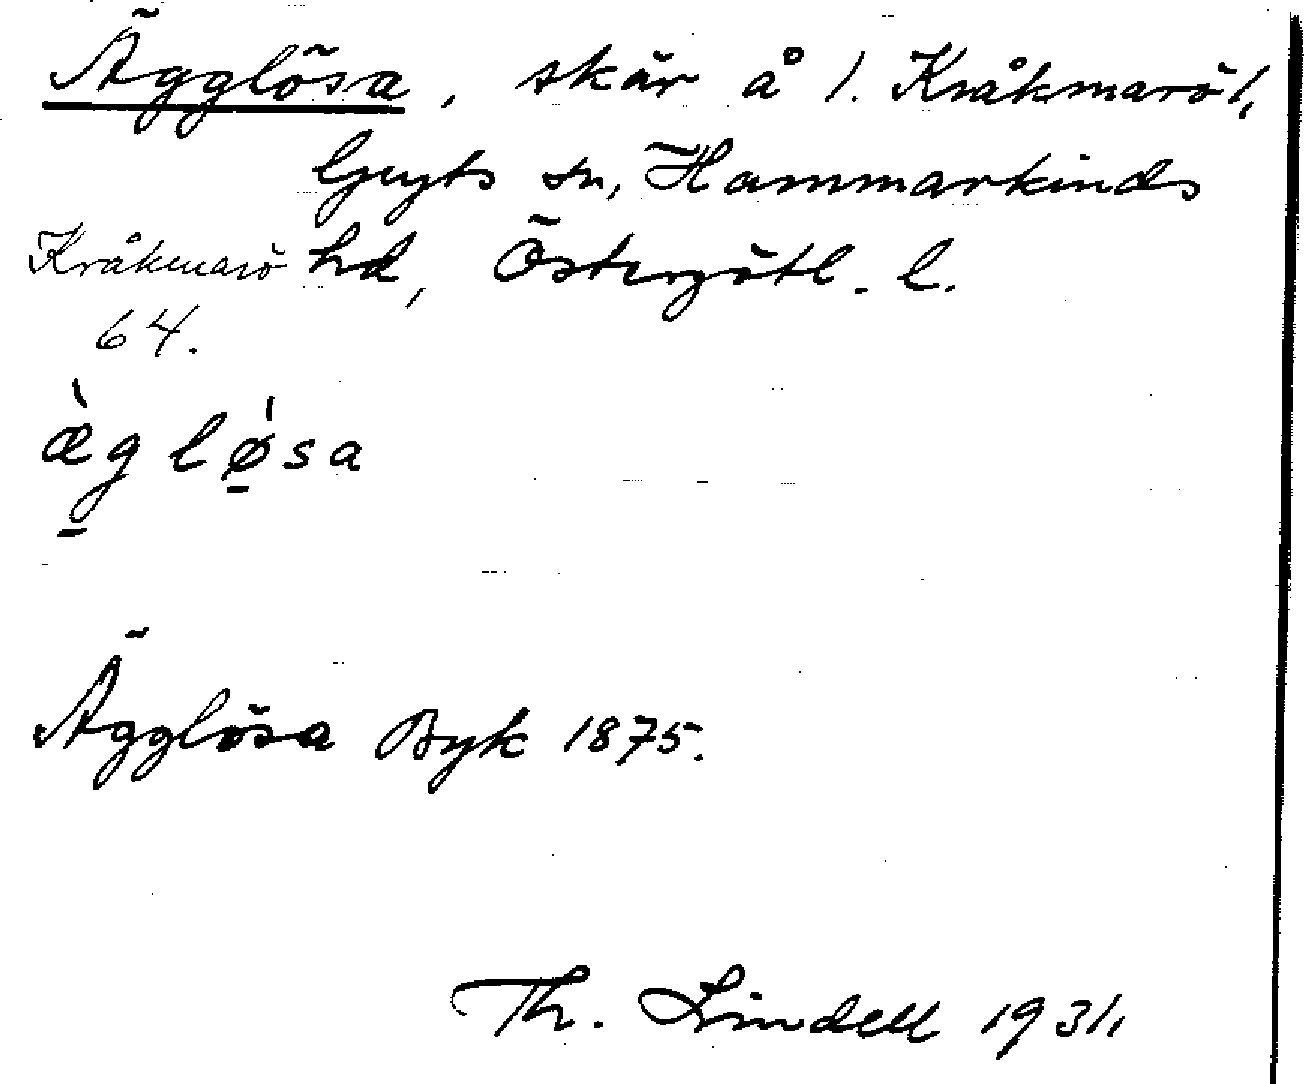 Ägglösa, skär å l. Kråkmarö l,
Gryts sn, Hammarkinds
Kråkmarö hd, Östergötl. l.
64.
æ̀gløsa
Ägglösa Byk 1875.
Th. Lindell 1931.